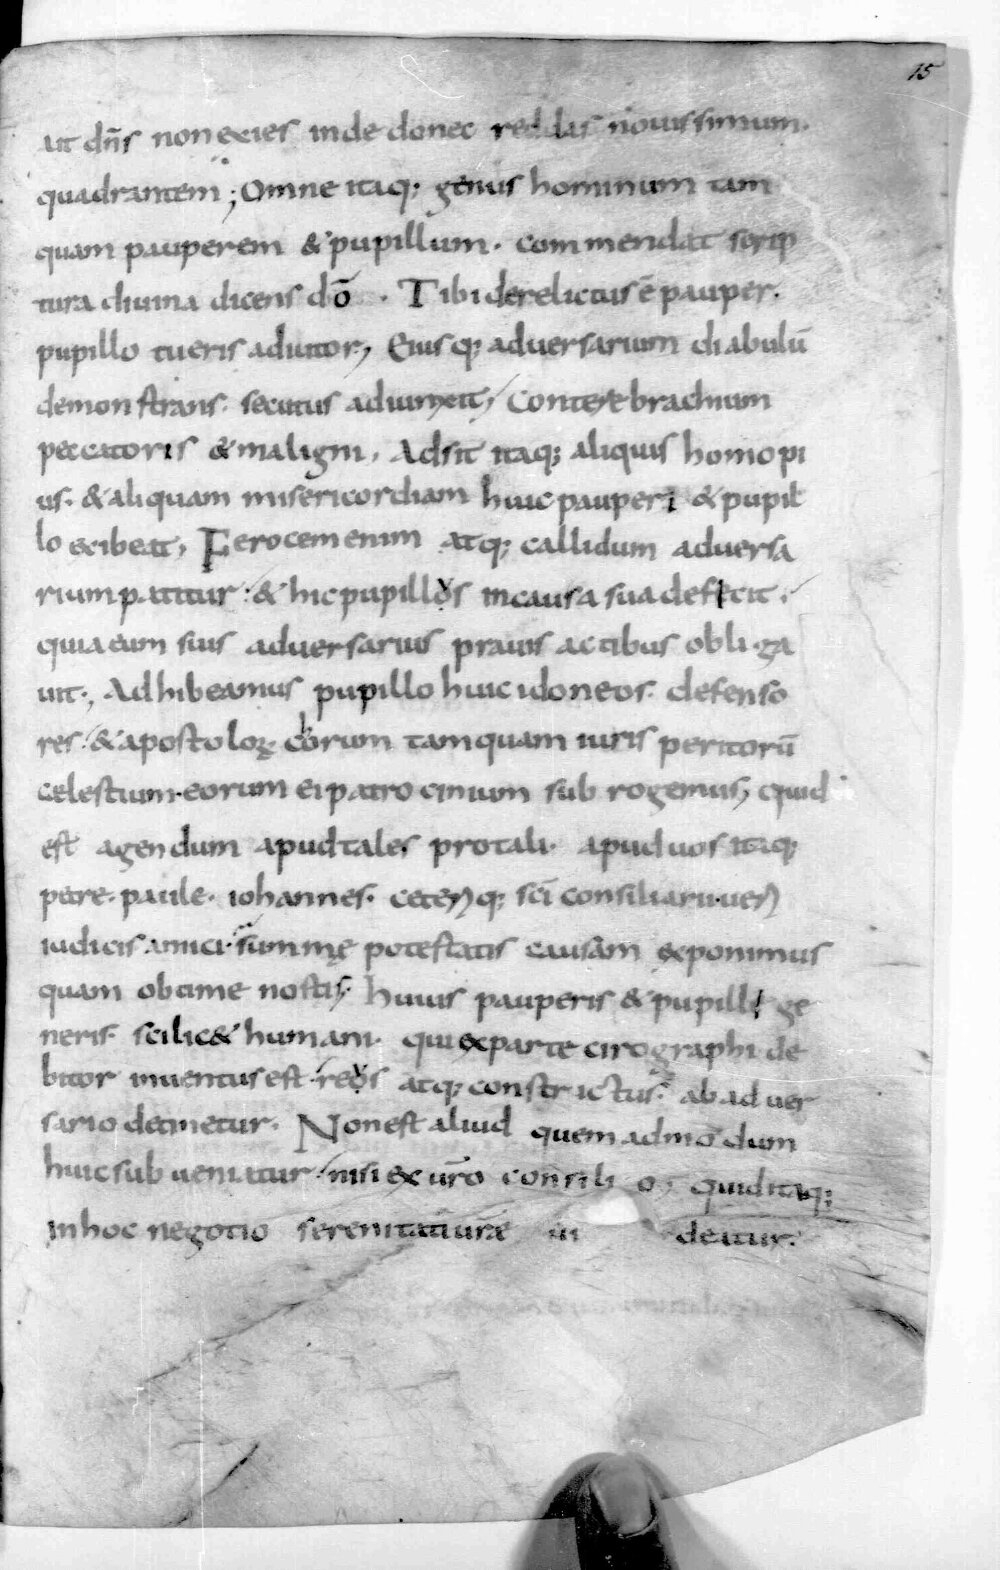 15
ait dn̄s non exies inde donec reddas nouissimum.
quadrantem; Omne itaq; genus hominum tam
quam pauperem & pupillum. commendat scrip
tura diuina dicens dō. Tibi derelictus ē pauper.
pupillo tu eris adiutor; Eiusq; aduersarium diabulū
demonstrans. secutus adiunxit; Contere brachium
peccatoris & maligni. Adsit itaq; aliquis homo pi
us. & aliquam misericordiam huic pauperi & pupil
lo exibeat; Ferocem enim atq; callidum aduersa
rium patitur. & hic pupillus in causa sua defecit.
quia eum suis aduersarius prauis actibus obliga
uit; Adhibeamus pupillo huic idoneos. defenso
res. & apostoloꝝ chorum tamquam iuris peritorū
celestium. eorum ei patrocinium sub rogemus; quid
est agendum apud tales pro tali. apud uos itaq;
petre. paule. iohannes. ceteriq; sc̄i consiliarii. ueri
iudicis amici. summę potestatis causam exponimus
quam obtime nostis; huius pauperis & pupilli ge
neris. scilic& humani. qui ex parte cirographi de
bitor inuentus est. reus atq; constrictus. ab aduer
sario detinetur. Non est aliud quemadmodum
huic sub ueniatur. nisi ex ur̄o consilio; quid itaq;
in hoc negotio serenitati ur̄ae ui deatur.